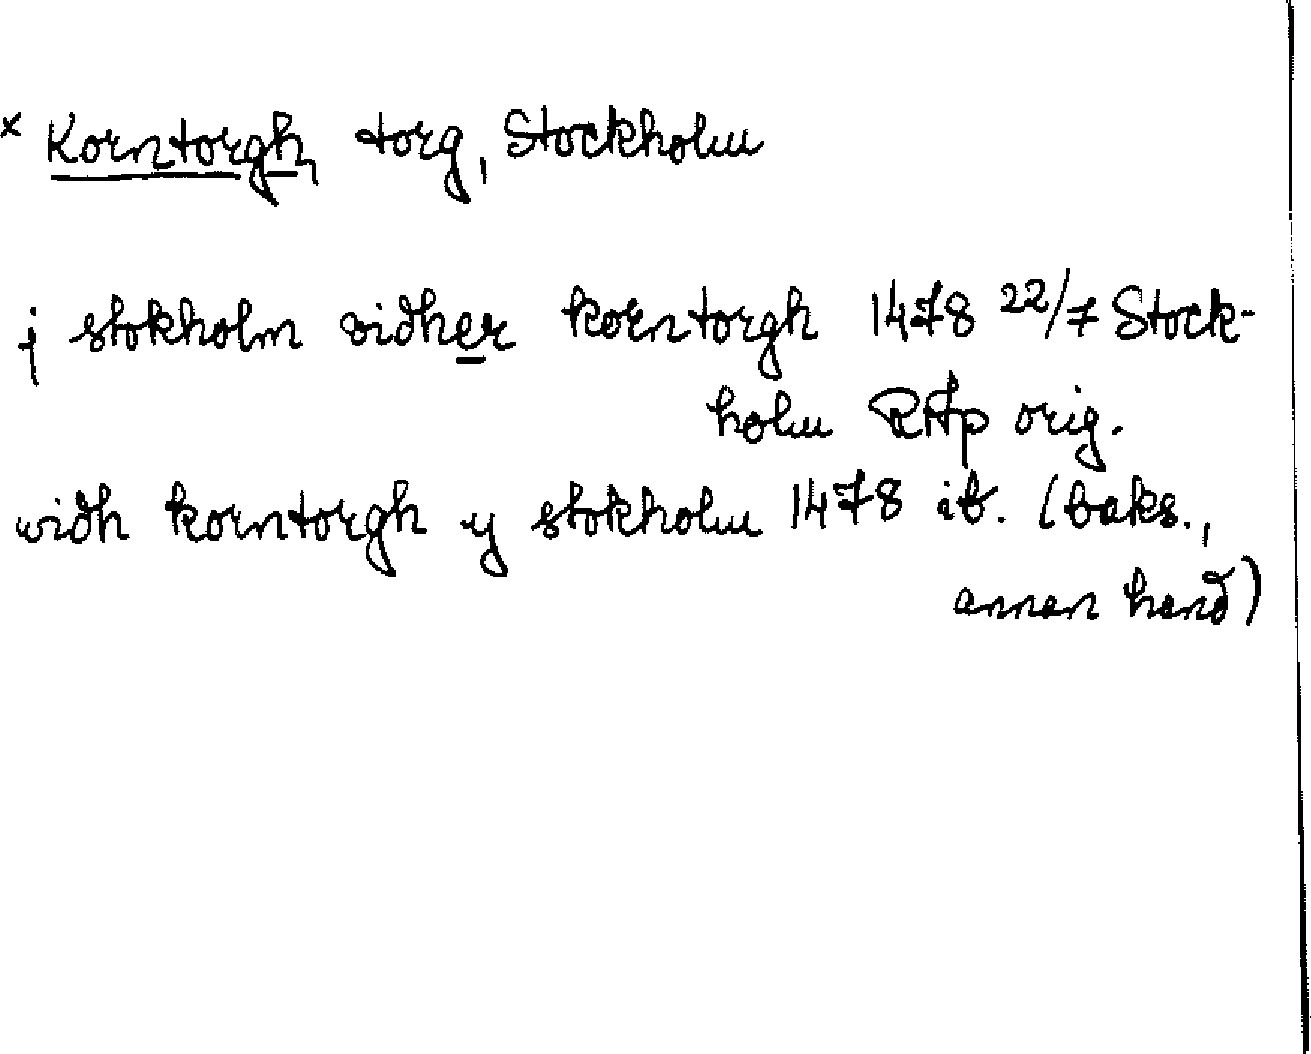 x Korntorgh, torg, Stockholm
j stokholm vidher korntorgh 1478 22/7 Stock-
holm RAp orig.
widh korntorgh y stokholm 1478 ib. (baks.,
annan hand)